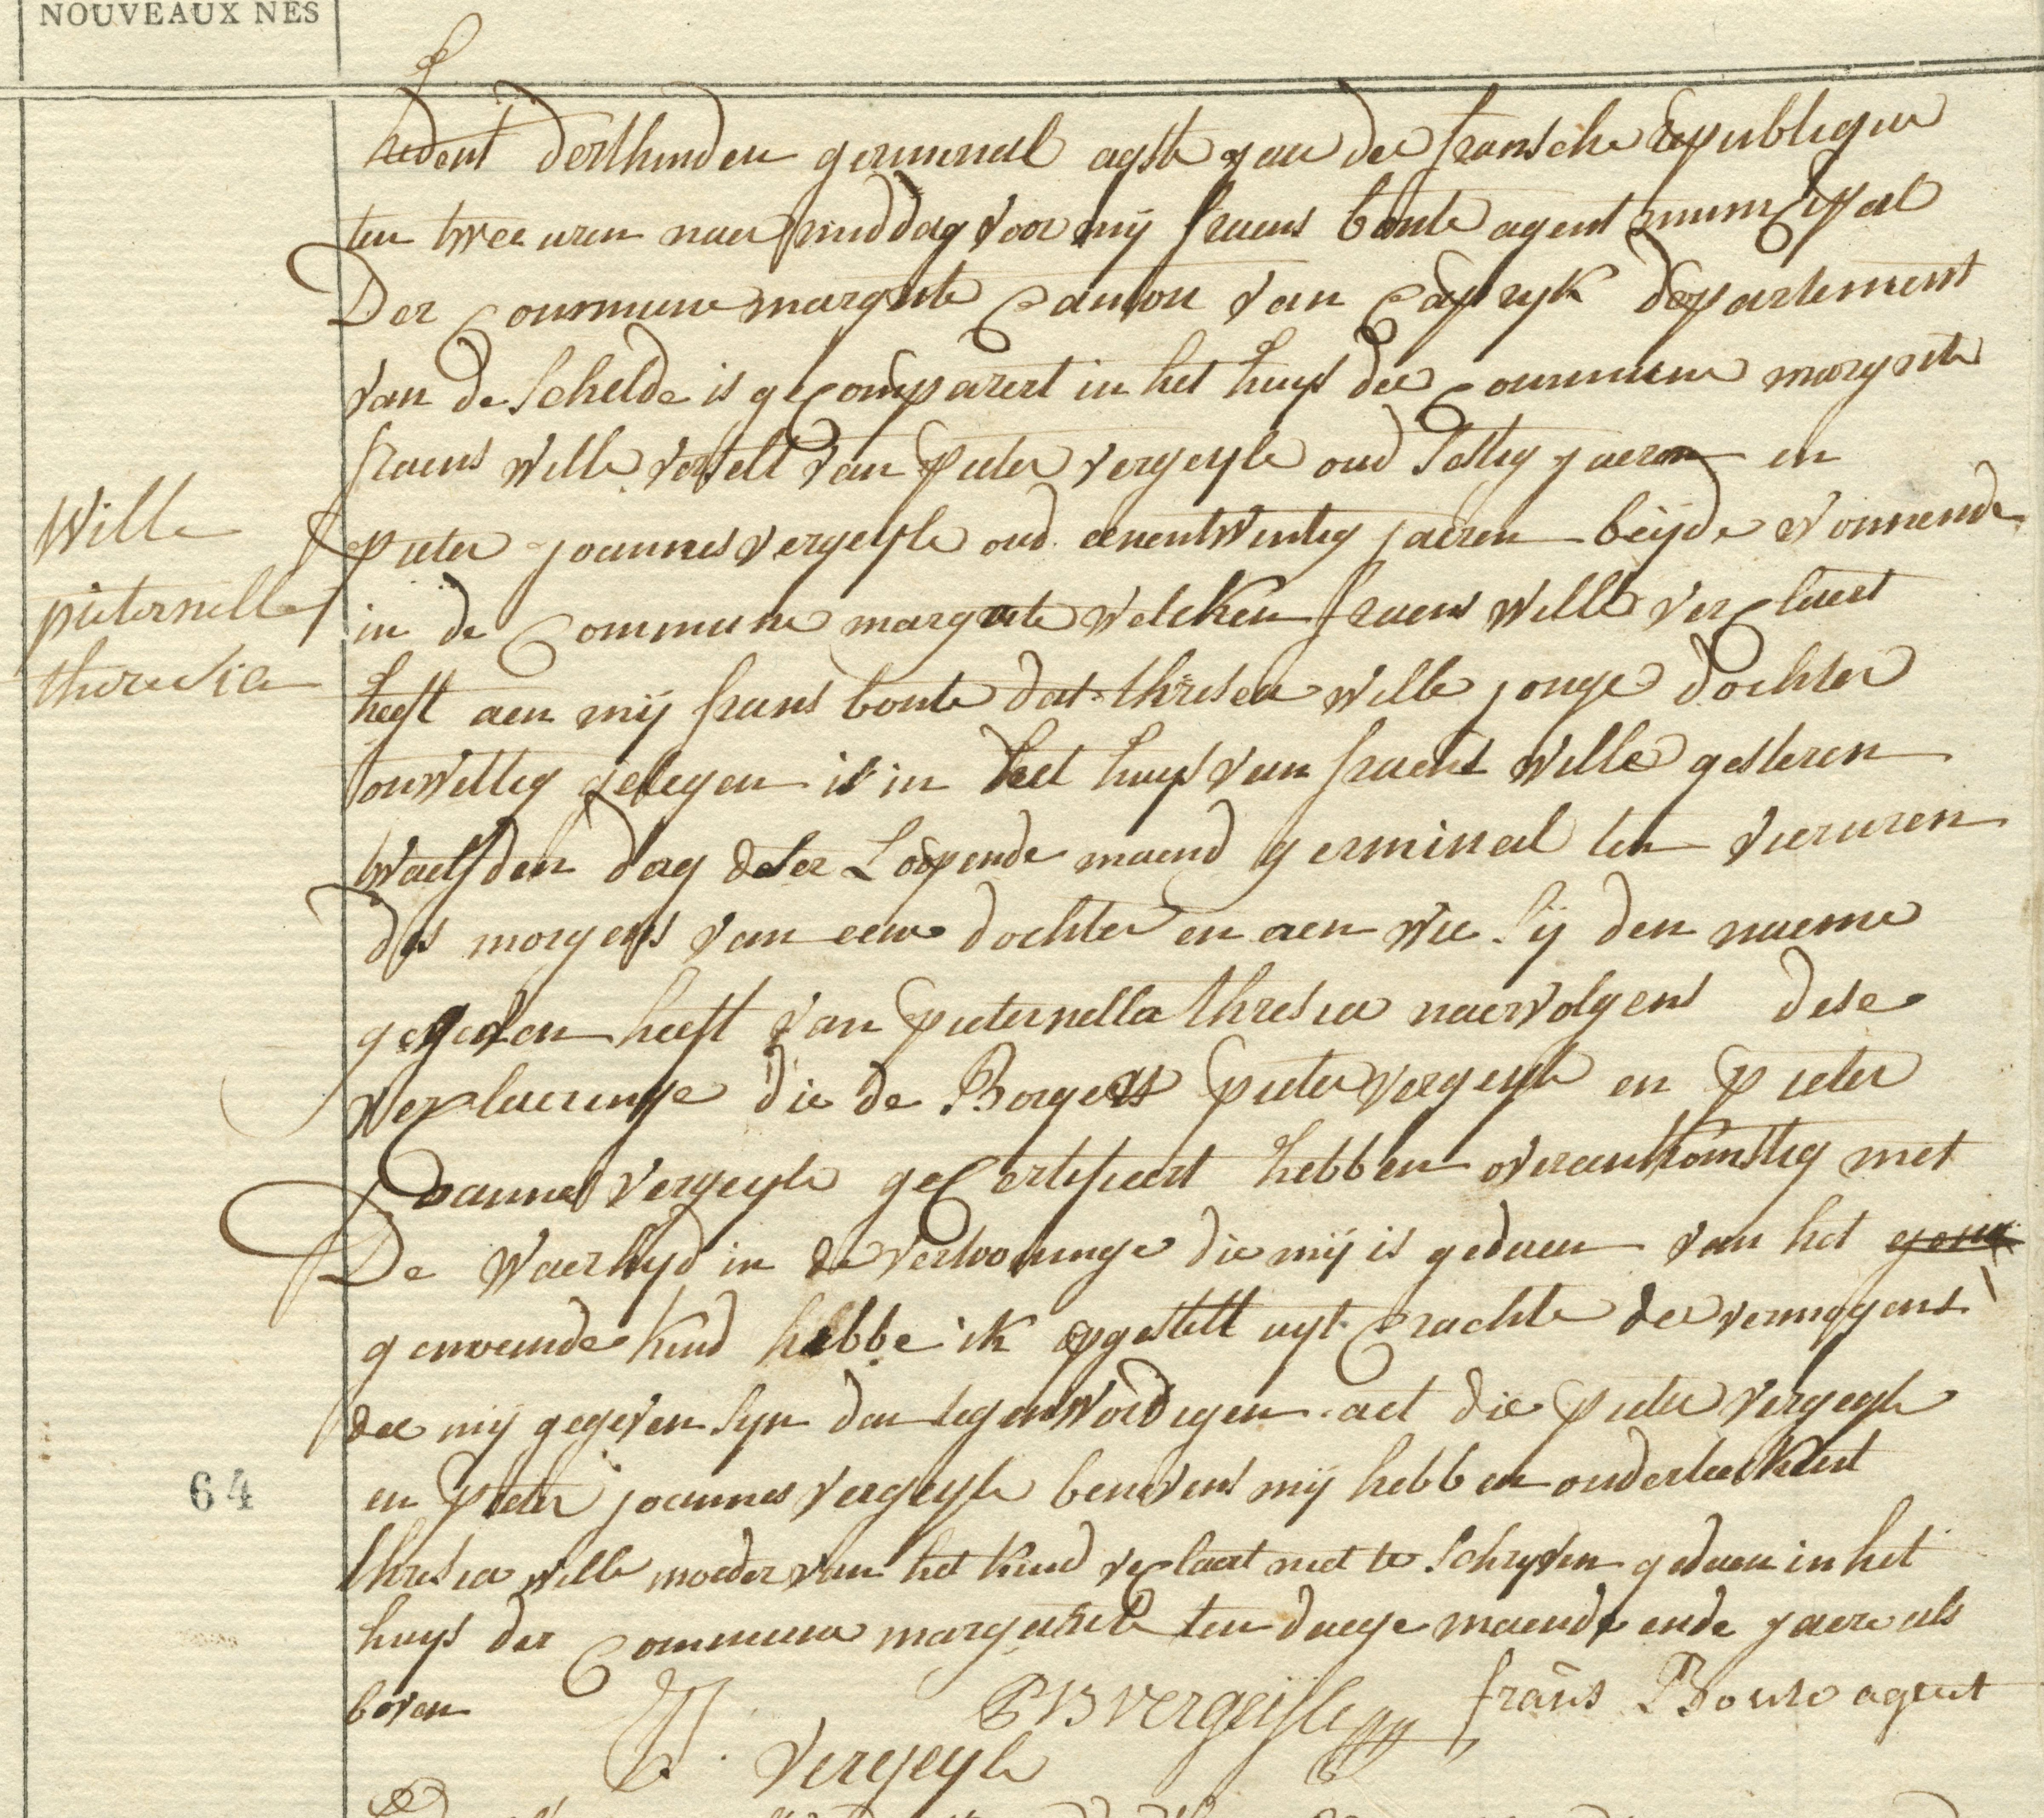 NOUVEAUX NÉS
hedent derthinden germinal agste jaer der fransche republique
ten twee uren naer middag voor mij fraens bonte agent municipael
Der Commune margrite Canton van Capryk departement
van de Schelde is gecompareert in het huys der Commune margrite
fraens wille verselt van pieter vergeyle oud sestig jaeren en
pieter joannes vergeyle oud eenentwintig jaeren beijde wonnende
in de Commune margrite welcken fraens wille verclaert
heeft aen mij frans bonte dat thresea wille jonge dochter
onwettig gelegen is in het huys van fraens wille gisteren
twaelfden dag deser Loopende maend germinal ten vier uren
des morgens van eene dochter en aen wie sij den naeme
gegeven heeft van pieternella thresia naervolgens dese
verclaeringe die de Borgers pieter vergeyle en pieter
Joannes vergeyle geCertifieert hebben overeenkomstig met
De waerhyd in de vertooninge die mij is gedaen van het
genoemde kind hebbe ik opgestelt uyt Crachte der vermogens
die mij gegeven syn den tegenwordigen act die pieter vergeyle
en pieter joannes vergeyle benevens mij hebben onderteekent
thresia wille moeder van het kind veclaert niet te schryven gedaen in het
huys der Commune margariete ten daege maende ende jaere als
boven
PB vergeijle frans Bonte agent
J. vergeyle
Wille
pieternelle
theresia
64